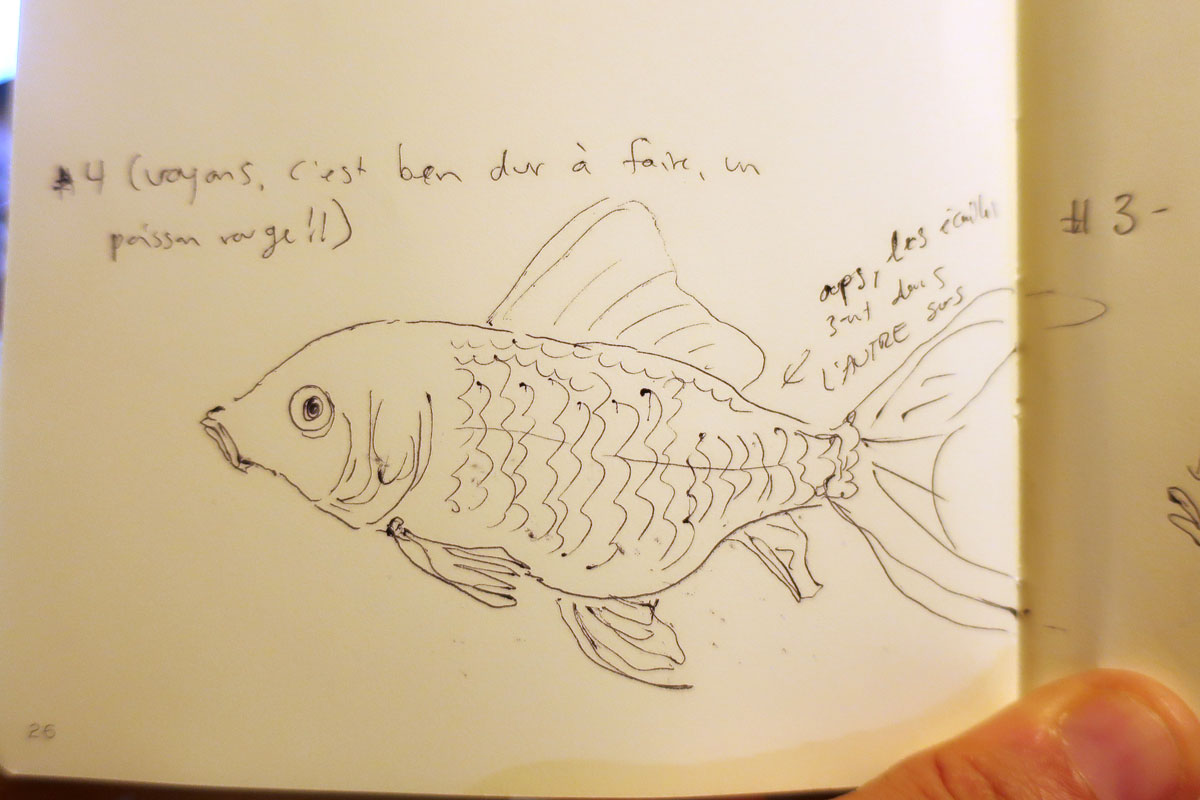 #4 (voyons, c'est ben dur à faire, un
poisson rouge!!)
oops, les écailles
sont dans
L'AUTRE sens
#3-
26